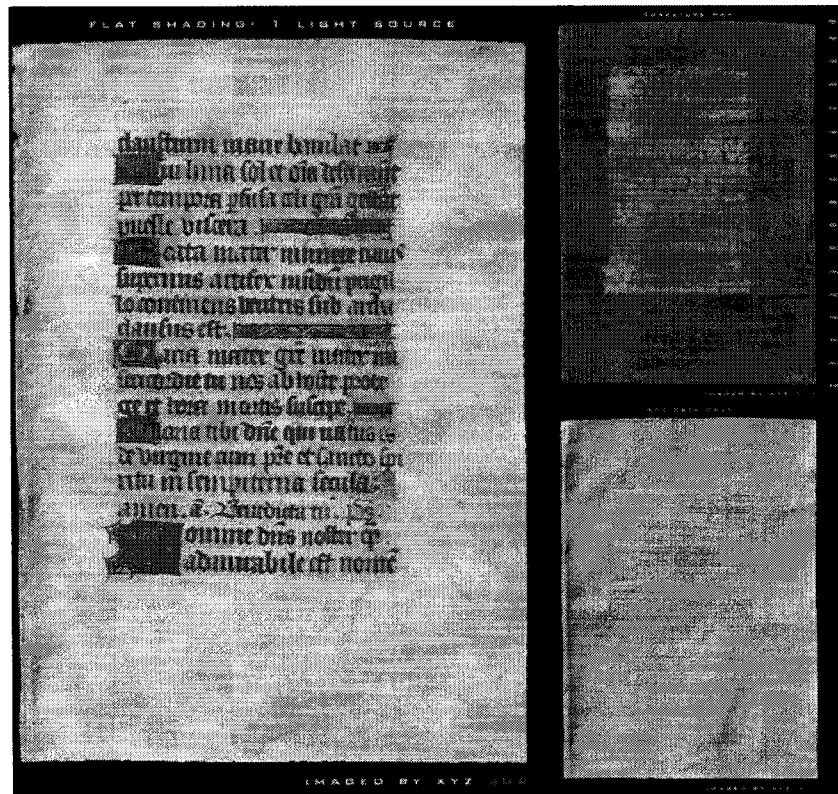 FLAT SHADING: 1 LIGHT SOURCE
claustrum marie baiulat
luna sol et oīa deseruiūt
per tempora pfusa celi grā gestāt
puelle viscera.
eata mater munere cuius
supernus artifex mūdū pugil
lo continens ventris sub archa
clausus est.
aria mater grē mater mi
sericordie tu nos ab hoste prote
ge et hora mortis suscipe.
oria tibi dn̄e qui natus es
de virgine cum pr̄e et sancto spi
ritu in sempiterna secula.
amen. a. Benedicta tu. ps
omine dn̄s noster q̄
admirabile est nomē
IMAGED BY XYZ RGB